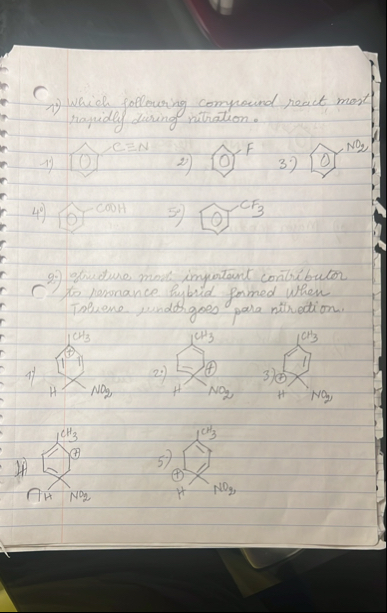 1) Which following compound react most
rapidly during nitration.
1) C≡N 2) F 3) NO2
4) COOH 5) CF3
2) structure most important contributor
to resonance hybrid formed when
Toluene undergoes para nitration.
CH3 CH3 CH3
1) + 2) + 3) +
H NO2 H NO2 H NO2
CH3 CH3
4) + 5) +
H NO2 H NO2